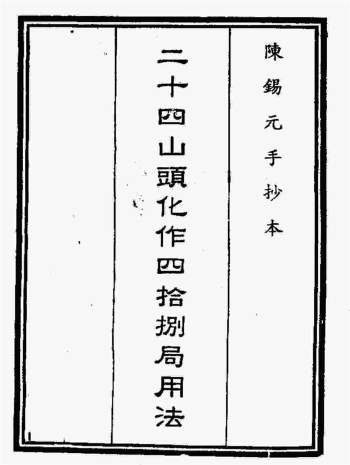 陳錫元手抄本
二十四山頭化作四拾捌局用法